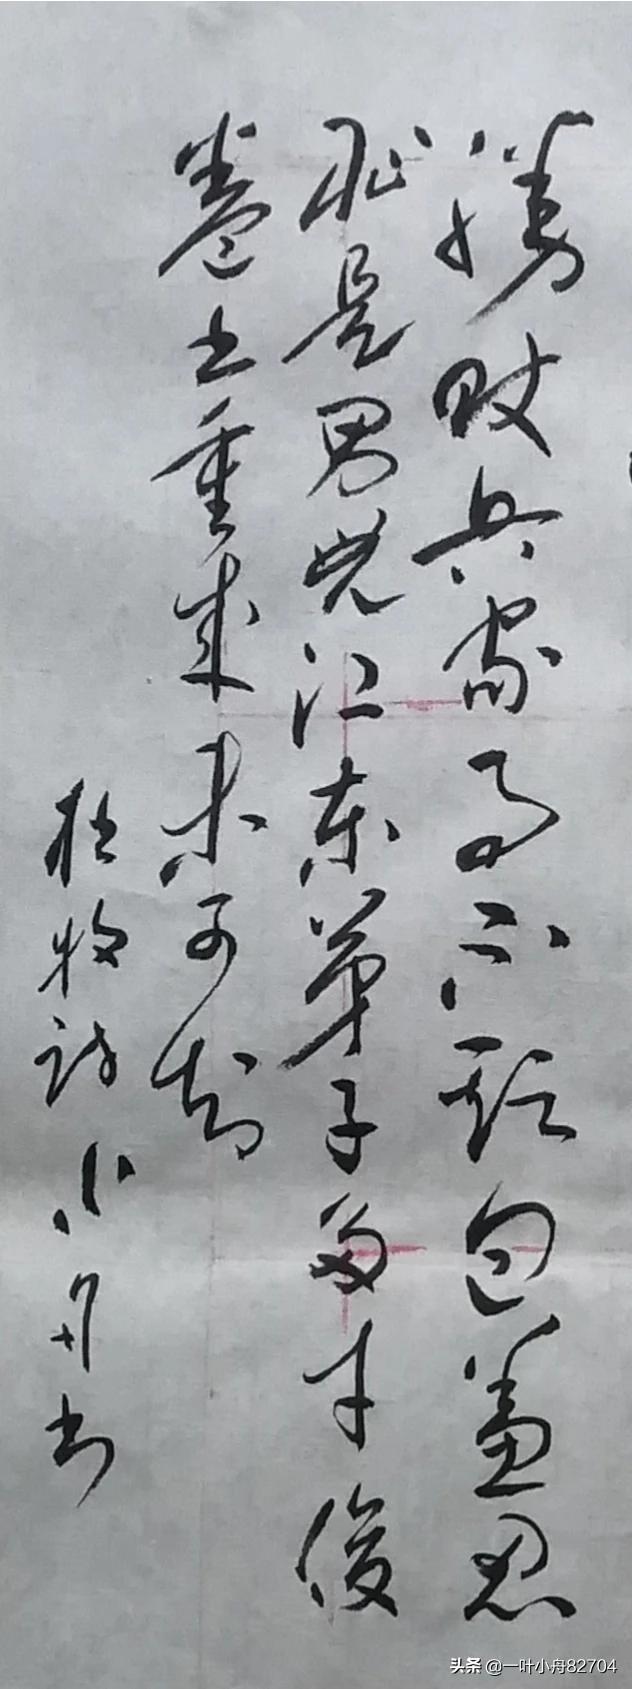 勝敗兵家事不期包羞忍
恥是男兒江東弟子多才俊
卷土重來未可知
杜牧詩小舟書
头条 @一叶小舟82704